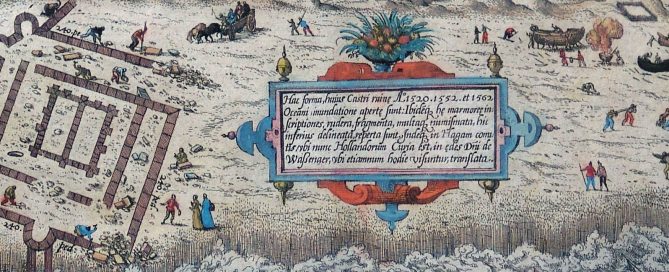 240. pe.
Hac forma, huius Castri ruine Aº 1520. 1552. et 1562
Oceani inundatione aperte sunt: Ibideq; he marmoree in=
scriptiones, rudera, fragmenta, multaq; numismata, huc
inferius delineata, reperta sunt, Indeq; in Hagam comi
tis, vbi nunc Hollandorum Curia est, in edes Dni de
Wassenger, vbi etiamnum hodie visuntur, translata.
240.
ped.